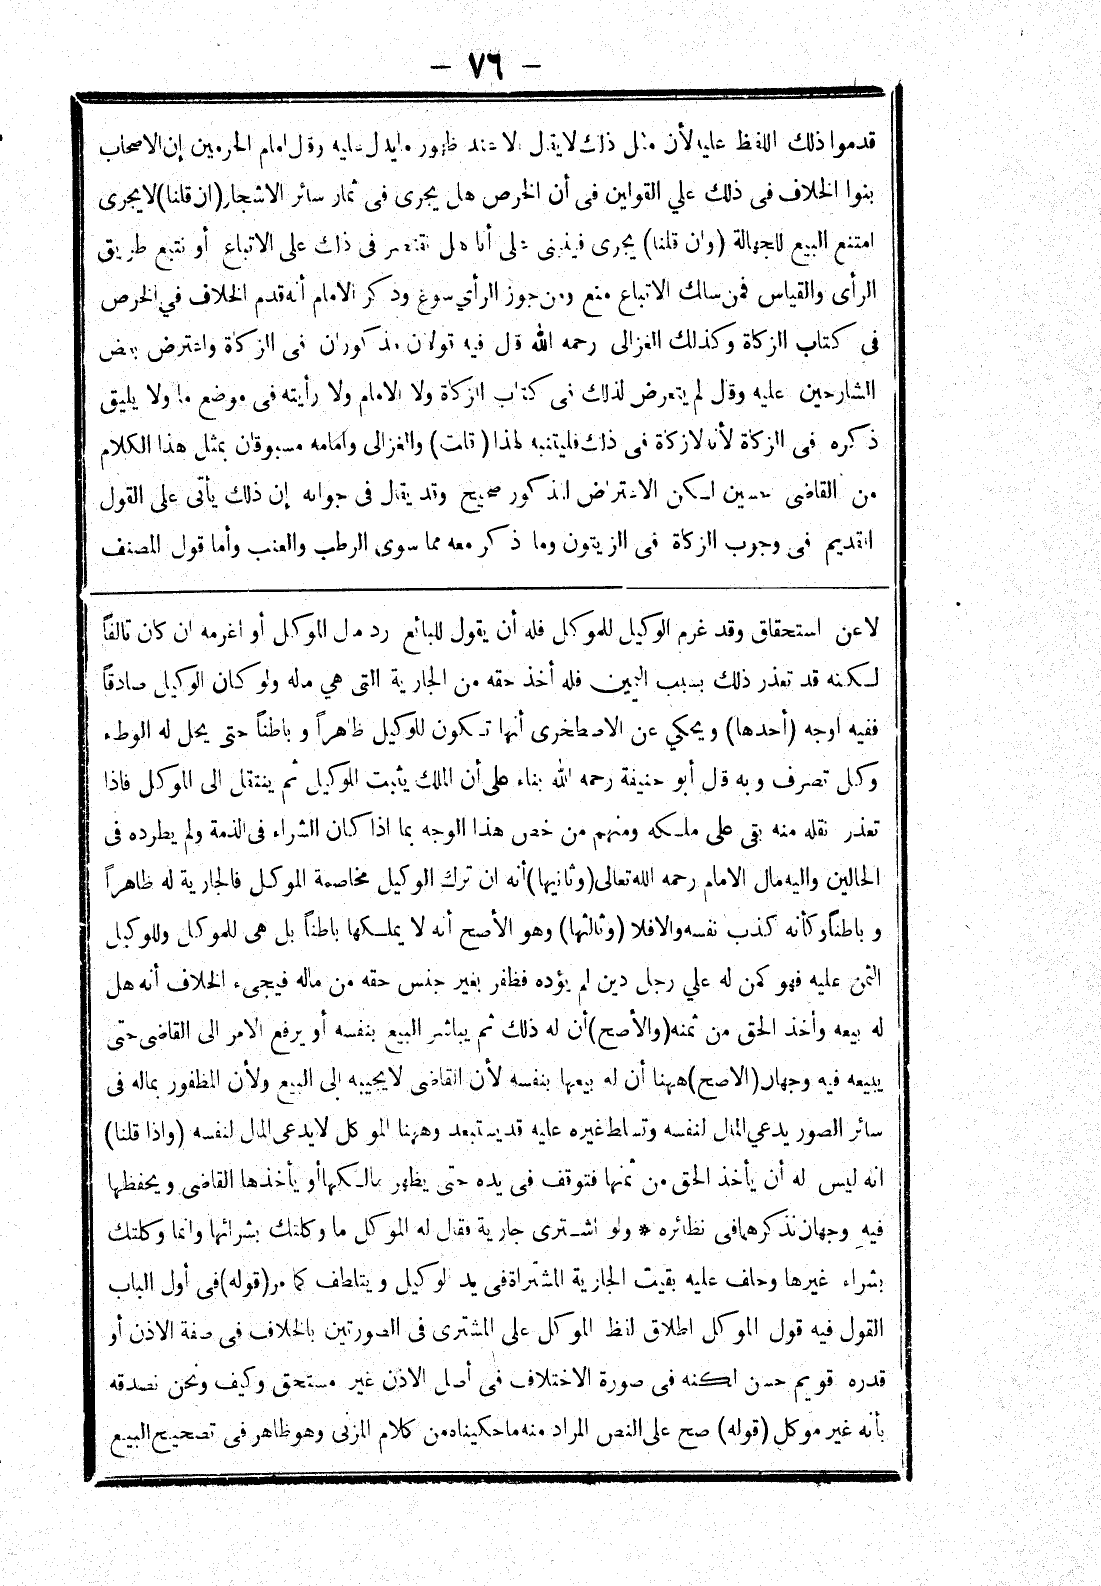 — ٧٦ —
قدموا ذلك اللفظ عليه لأن مثل ذلك لا يقال الا عند ظهور ما يدل عليه وقال امام الحرمين إن الاصحاب
بنوا الخلاف فى ذلك علي القولين فى أن الخرص هل يجرى فى ثمار سائر الاشجار (ان قلنا) لا يجرى
امتنع البيع للجهالة (وان قلنا) يجرى فينبنى على أنا هل نقتصر فى ذلك على الاتباع أو نتبع طريق
الرأى والقياس فمن سالك الاتباع منع ومن جوز الرأي سوغ وذكر الامام أنه قدم الخلاف في الخرص
فى كتاب الزكاة وكذلك الغزالى رحمه الله قال فيه قولان مذكوران فى الزكاة واعترض بعض
الشارحين عليه وقال لم يتعرض لذلك فى كتاب الزكاة ولا الامام ولا رأيته فى موضع ما ولا يليق
ذكره فى الزكاة لأنه لا زكاة فى ذلك فليتنبه لهذا (قلت) والغزالى وامامه مسبوقان بمثل هذا الكلام
من القاضى حسين لكن الاعتراض المذكور صحيح وقد يقال فى جوابه إن ذلك يأتى على القول
القديم فى وجوب الزكاة فى الزيتون وما ذكر معه مما سوى الرطب والعنب وأما قول المصنف
لاعن استحقاق وقد غرم الوكيل للموكل فله أن يقول للبائع رد مال الموكل أو اغرمه ان كان تالفاً
لكنه قد تعذر ذلك بسبب اليمين فله أخذ حقه من الجارية التى هي ماله ولو كان الوكيل صادقاً
ففيه اوجه (أحدها) ويحكي عن الاصطخرى أنها تكون للوكيل ظاهراً و باطناً حتى يحل له الوطء
وكل تصرف وبه قال أبو حنيفة رحمه الله بناء على أن الملك يثبت للوكيل ثم ينتقل الى الموكل فاذا
تعذر نقله منه بقى على ملكه ومنهم من خص هذا الوجه بما اذا كان الشراء فى الذمة ولم يطرده فى
الحالين واليه مال الامام رحمه الله تعالى (وثانيها) أنه ان ترك الوكيل مخاصمة الموكل فالجارية له ظاهراً
و باطناً وكأنه كذب نفسه والا فلا (وثالثها) وهو الأصح أنه لا يملكها باطناً بل هى للموكل وللوكيل
الثمن عليه فهو كمن له علي رجل دين لم يؤده فظفر بغير جنس حقه من ماله فيجىء الخلاف أنه هل
له بيعه وأخذ الحق من ثمنه (والأصح) أن له ذلك ثم يباشر البيع بنفسه أو يرفع الامر الى القاضى حتى
يبيعه فيه وجهان (الاصح) ههنا أن له بيعها بنفسه لأن القاضى لا يجيبه إلى البيع ولأن المظفور بماله فى
سائر الصور يدعي المال لنفسه وتسلط غيره عليه قد يستبعد وههنا الموكل لا يدعى المال لنفسه (واذا قلنا)
انه ليس له أن يأخذ الحق من ثمنها فتوقف فى يده حتى يظهر مالكها أو يأخذها القاضى ويحفظها
فيه وجهان نذكرهما فى نظائره * ولو اشترى جارية فقال له الموكل ما وكلتك بشرائها وانما وكلتك
بشراء غيرها وحلف عليه بقيت الجارية المشتراة فى يد الوكيل ويتلطف كما مر (قوله) فى أول الباب
القول فيه قول الموكل اطلاق لفظ الموكل على المشترى فى الصورتين بالخلاف فى صفة الاذن أو
قدره قويم حسن لكنه فى صورة الاختلاف فى أصل الاذن غير مستحق وكيف ونحن نصدقه
بأنه غير موكل (قوله) صح على النص المراد منه ما حكيناه من كلام المزنى وهو ظاهر فى تصحيح البيع